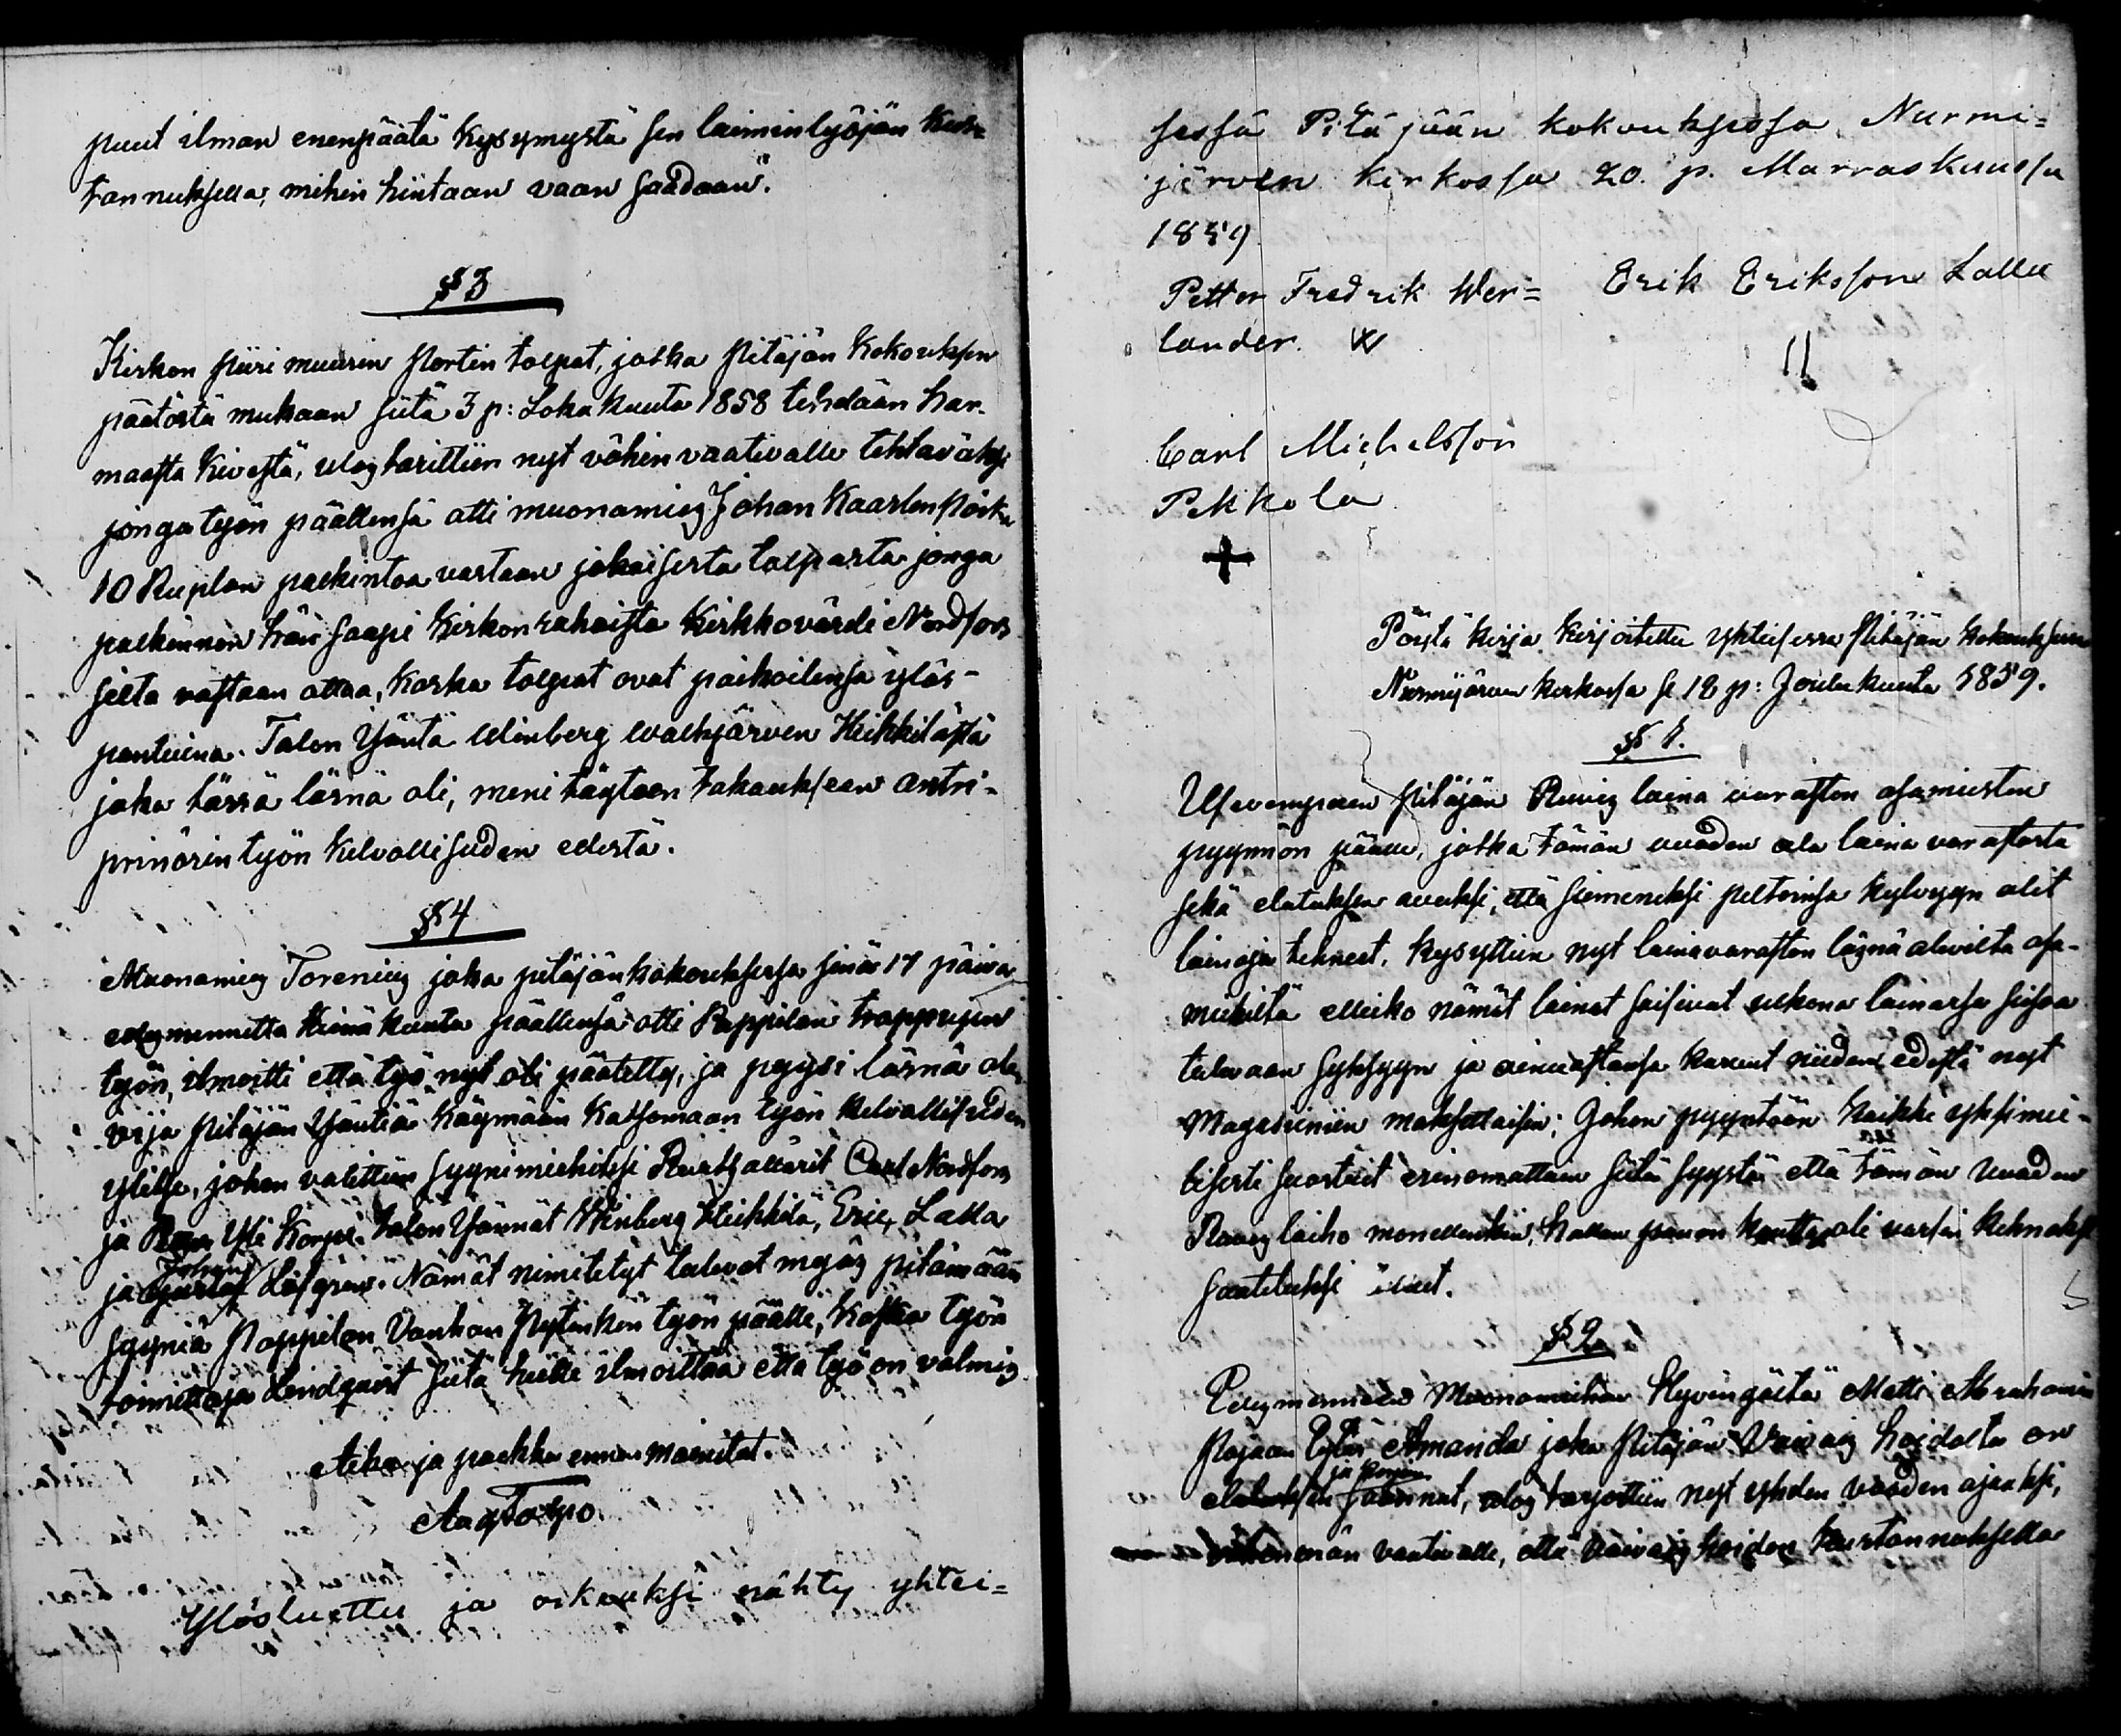 puut ilman enenpäätä kysymystä sen laiminlyöjän kus-
tannuksella, mihin hintaan vaan saadaan.
§ 3
Kirkon piiri muurin Portin tolpat, jotka Pitäjän Kokouksen
päätöstä mukaan siitä 3 p: Lokakuuta 1858 tehdään har-
maasta Kivestä, ulostarittiin nyt vähin vaativalle tehtäväksi
jonga työn päällensä otti muonamies Johan Kaarlenpoika
10 Ruplan palkintoa vastaan jokaisesta tolpasta jonga
palkinnon hän saapi Kirkon rahoista Kirkkovärdi Nordfors
silta vastaan ottaa, koska tolpat ovat paikoilensa ylös-
pantuina. Talon Isäntä Winberg Valkjärven Heikkilästä
joka tässä läsnä oli, meni täyteen takaukseen antri-
prinörin työn kelvollisuden edestä.
§ 4
Muonamies Torenius joka pitäjänkokouksessa sinä 17 päivä
edesmennetta Heinäkuuta päällensä otti Pappilan trappujen
työn, ilmoitti että työ nyt oli päätetty, ja pyysi läsnä ole-
via Pitäjän Isäntiä käymään katsomaan työn kelvollisuden
ylitse, johon valittiin syynimiehiksi Rusthollarit Carl Nordfors
ja Yli Korpi. Talon Isännät Winberg Heikkilä, Eric Lalla
ja Johan Löfgren. Nämät nimitetyt tulevat myös pitämään
syyniä Pappilan Vanhan Pytinkin työn päälle, koska työn
toimittaja Lindqvist siitä heille ilmoittaa että työ on valmis.
Aika ja paikka ennen mainitut.
Aug Tolpo.
Ylösluettu ja oikeuksi nähty yhtei=
sessä Pitäjään kokouksessa Nurmi=
järven kirkossa 20. p. Marraskuussa
1859.
Petter Fredrik Wer=
lander. W
Erik Eriksson Lallu
Carl Michelsson
Pekkola
+
Pöystä kirja kirjoitettu yhteisessa Pitäjän kokouksessa
Nurmijärven kirkossa se 18 p: Joulukuuta 1859.
§ 1.
Usevampaen Pitäjän Ruvis laina varaston osamiesten
pyynnön päälle, jotka tämän vuoden ala laina varastosta
sekä elatuksen avuksi, että siemeneksi peltoinsa kylvyyn olit
lainoja tehneet, kysyttiin nyt lainavaraston läsnä olevilta osa-
miehiltä elleikö nämät lainat saisivat ulkona lainassa seisoa
tulevaan syksyyn ja ainoastansa kasvut niiden edestä nyt
Magasiiniin maksettaisiin; Johon pyyntöön kaikki yksimie-
lisesti suostuit erinomattain siitä syystä että tämän vuoden
Ruvis laiho monellenkin, hallan panon kautta oli varsin kehnoksi
saatetuksi tullut.
§ 2.
Edesmenneen Muonamiehen Hyvingäeltä Matti Abrahamin
Pojaan Tytär Amanda joka Pitäjän Vaivais hoidosta on
elatuksen ja korjun saannut, ulos tarjottiin nyt yhden vuoden ajaksi,
vähemmän vaativalle, että vaivais hoidon kustannoksella